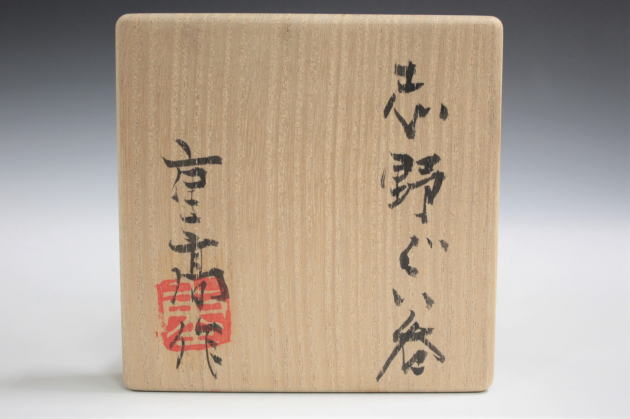 志野ぐい呑
高作